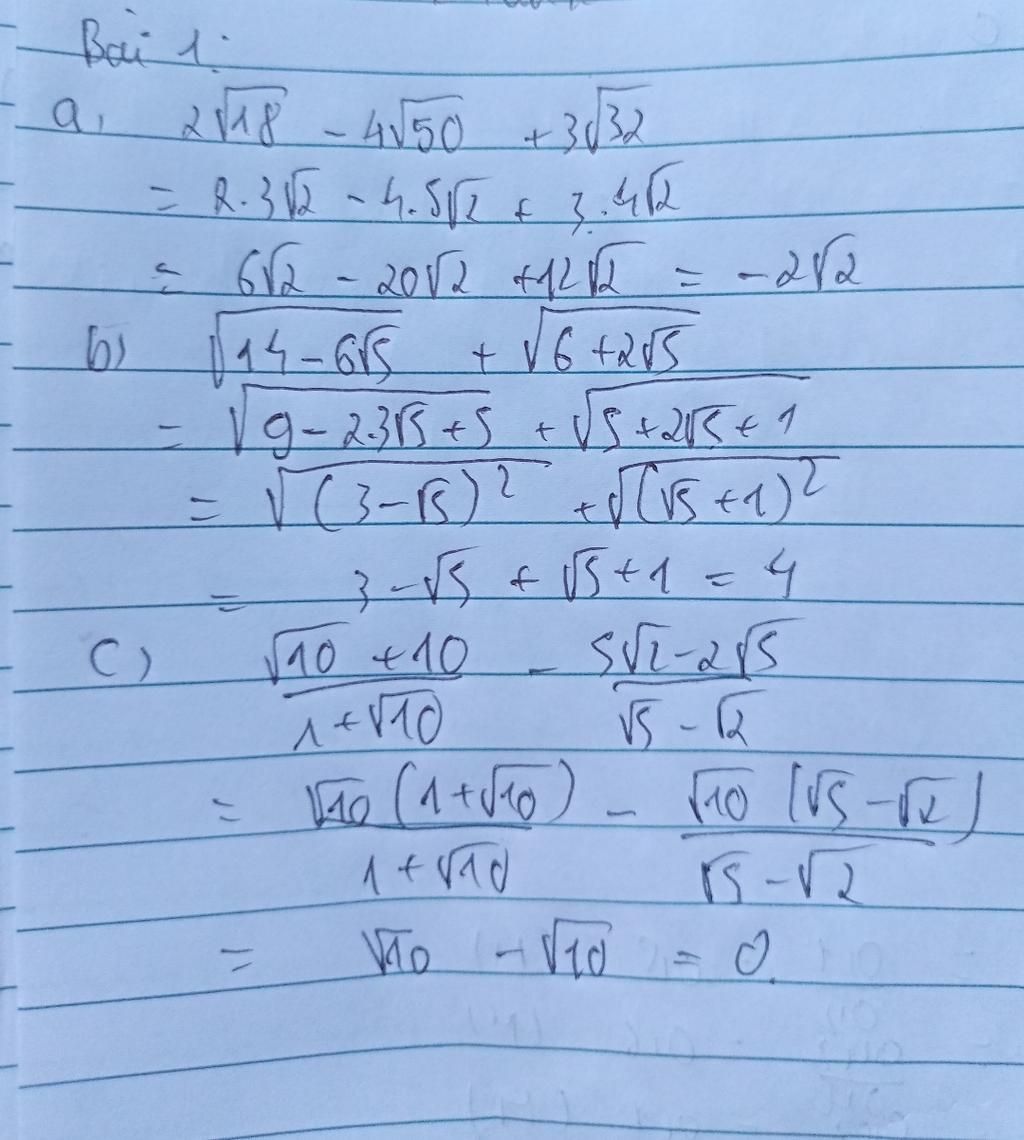 Bài 1:
a, 2√18 - 4√50 + 3√32
= 2.3√2 - 4.5√2 + 3.4√2
= 6√2 - 20√2 + 12√2 = -2√2
b) √(14 - 6√5) + √(6 + 2√5)
= √(9 - 2.3√5 + 5) + √(5 + 2√5 + 1)
= √((3 - √5)²) + √((√5 + 1)²)
= 3 - √5 + √5 + 1 = 4
c) (√10 + 10)/(1 + √10) - (5√2 - 2√5)/(√5 - √2)
= √10(1 + √10)/(1 + √10) - √10(√5 - √2)/(√5 - √2)
= √10 - √10 = 0.